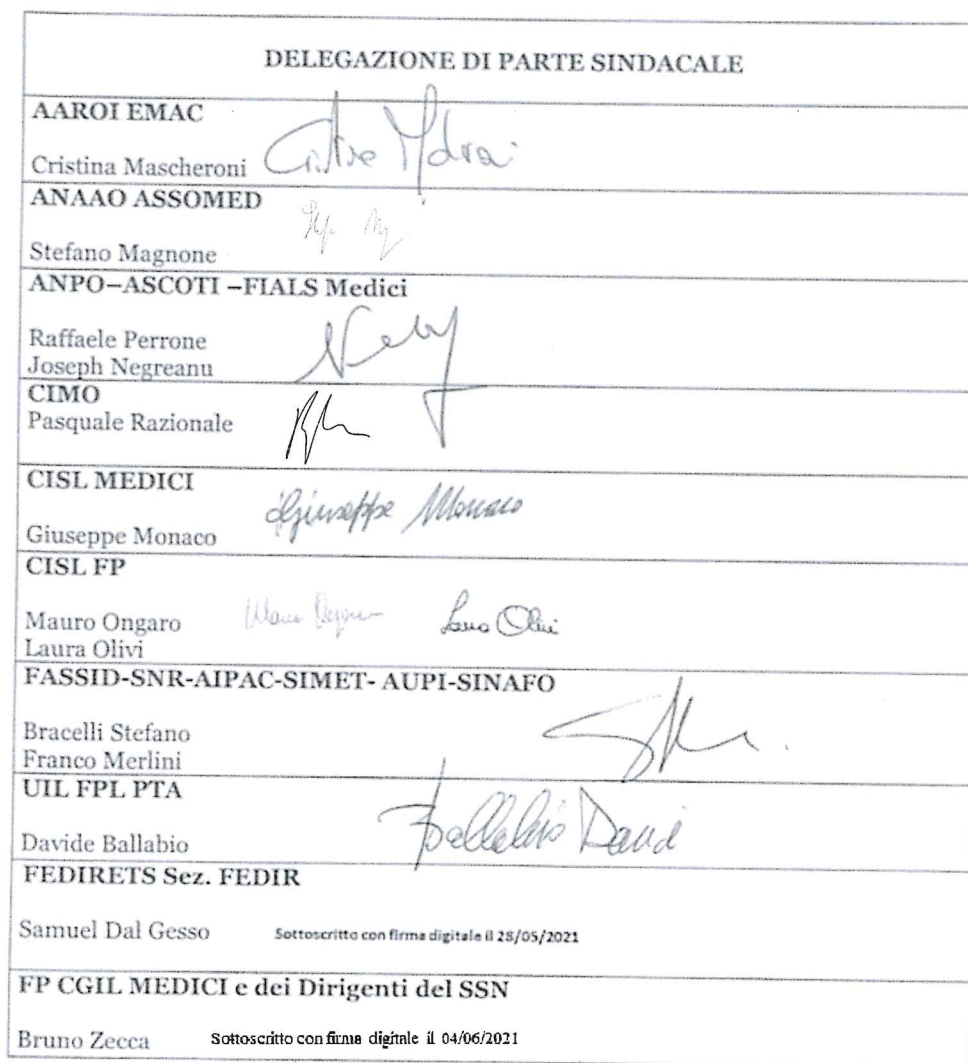 DELEGAZIONE DI PARTE SINDACALE
AAROI EMAC
Cristina Mascheroni
ANAAO ASSOMED
Stefano Magnone
ANPO–ASCOTI –FIALS Medici
Raffaele Perrone
Joseph Negreanu
CIMO
Pasquale Razionale
CISL MEDICI
Giuseppe Monaco Giuseppe Monaco
CISL FP
Mauro Ongaro Laura Olivi
Laura Olivi
FASSID-SNR-AIPAC-SIMET- AUPI-SINAFO
Bracelli Stefano
Franco Merlini
UIL FPL PTA
Davide Ballabio Ballabio David
FEDIRETS Sez. FEDIR
Samuel Dal Gesso Sottoscritto con firma digitale il 28/05/2021
FP CGIL MEDICI e dei Dirigenti del SSN
Bruno Zecca Sottoscritto con firma digitale il 04/06/2021